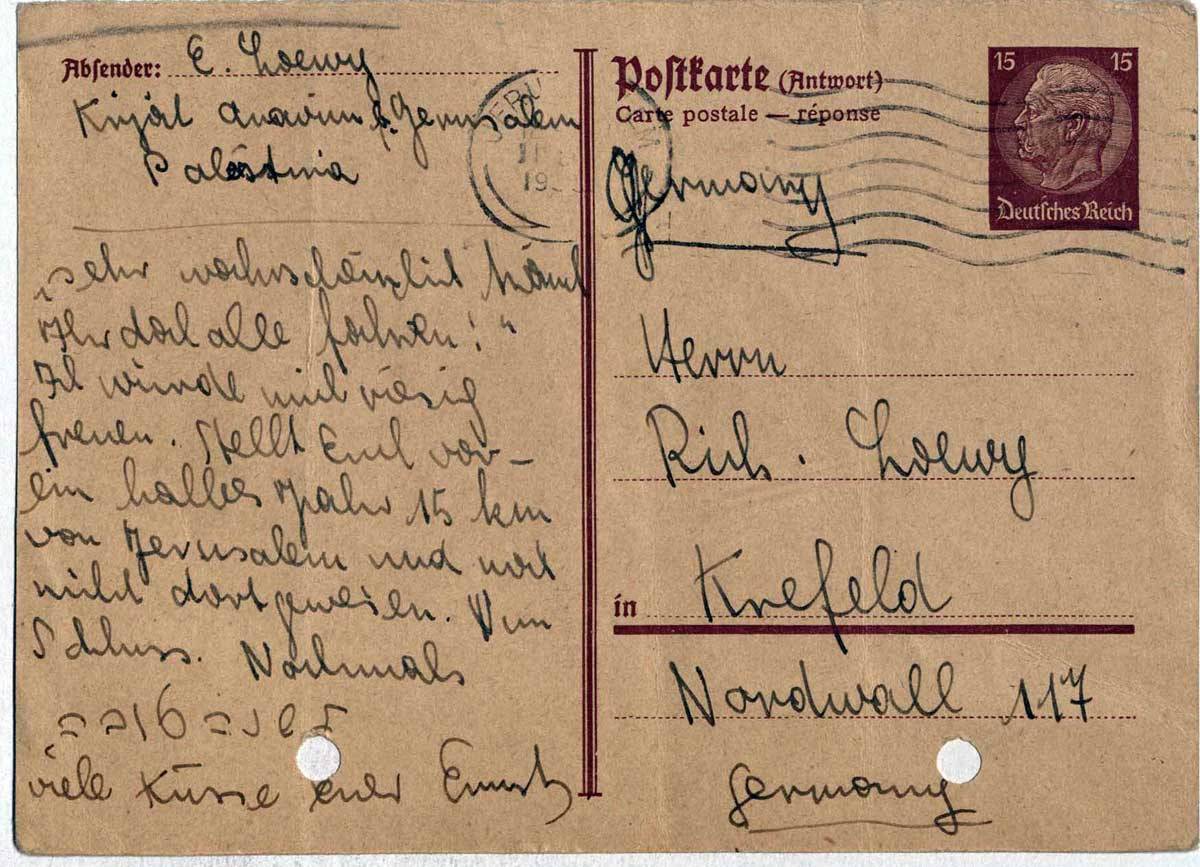 Absender: E. Loewy
Kirjat Anavim b. Jerusalem
Palästina
"sehr wahrscheinlich könnt
Ihr doch alle fahren!"
Ich würde mich riesig
freuen. Stellt Euch vor –
ein halbes Jahr 15 km
von Jerusalem und noch
nicht dort gewesen. Nun
Schluss. Nochmals
viele Küsse euer Ernst
Postkarte (Antwort)
Carte postale — réponse
15 15
Deutsches Reich
Germany
Herrn
Rich. Loewy
in Krefeld
Nordwall 117
Germany